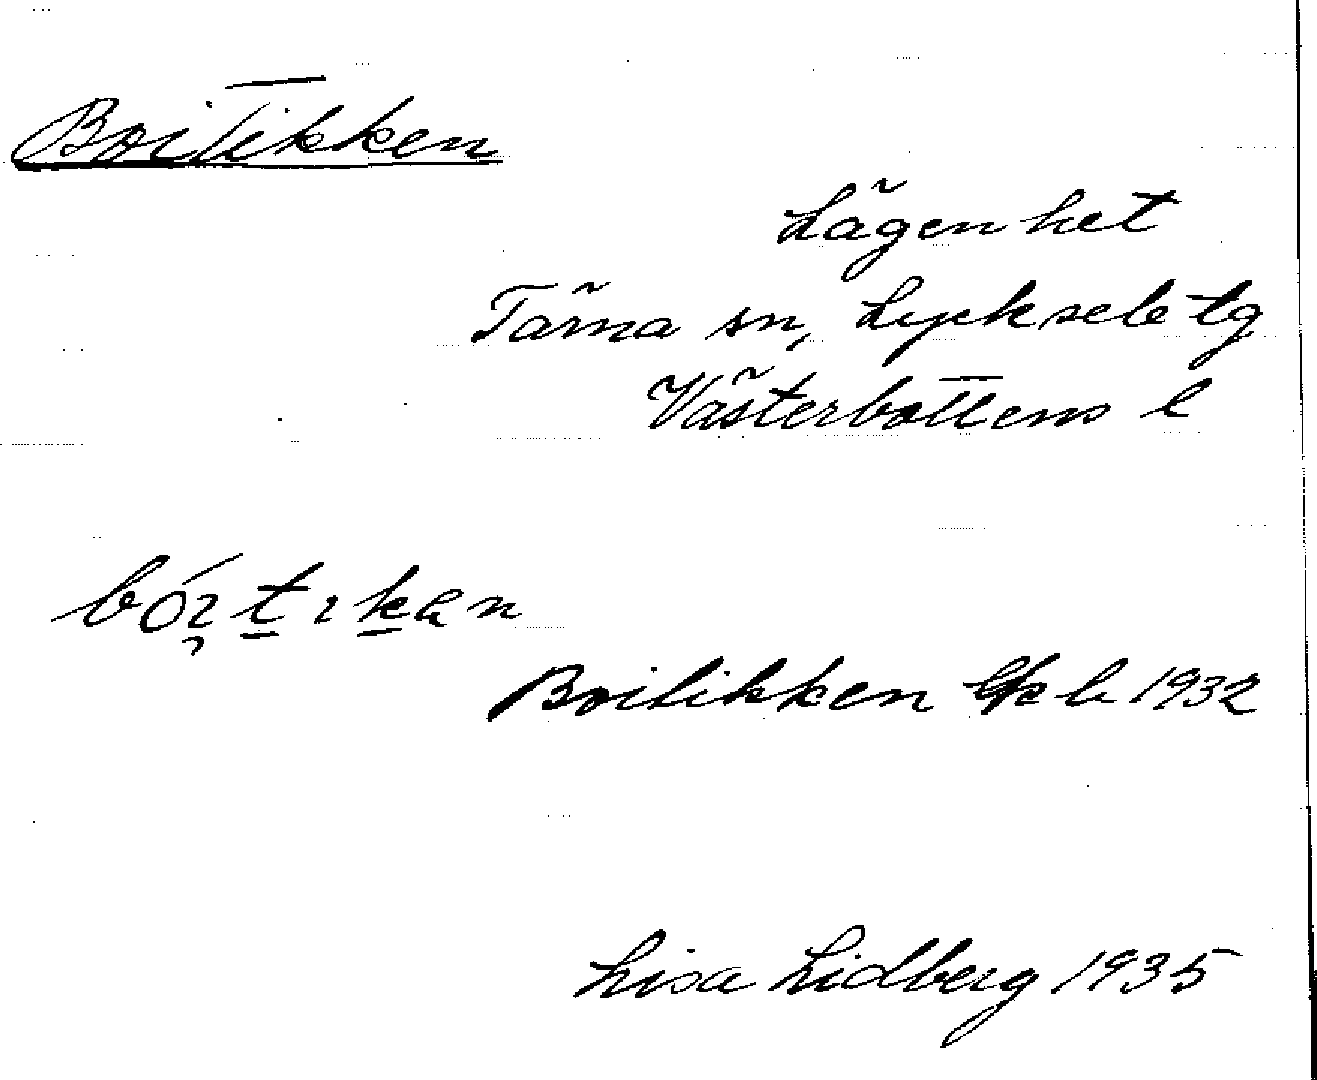 Boitikken
Lägenhet
Tärna sn, Lycksele tg
Västerbottens l
Boitikken Epk b 1932
Lisa Lidberg 1935